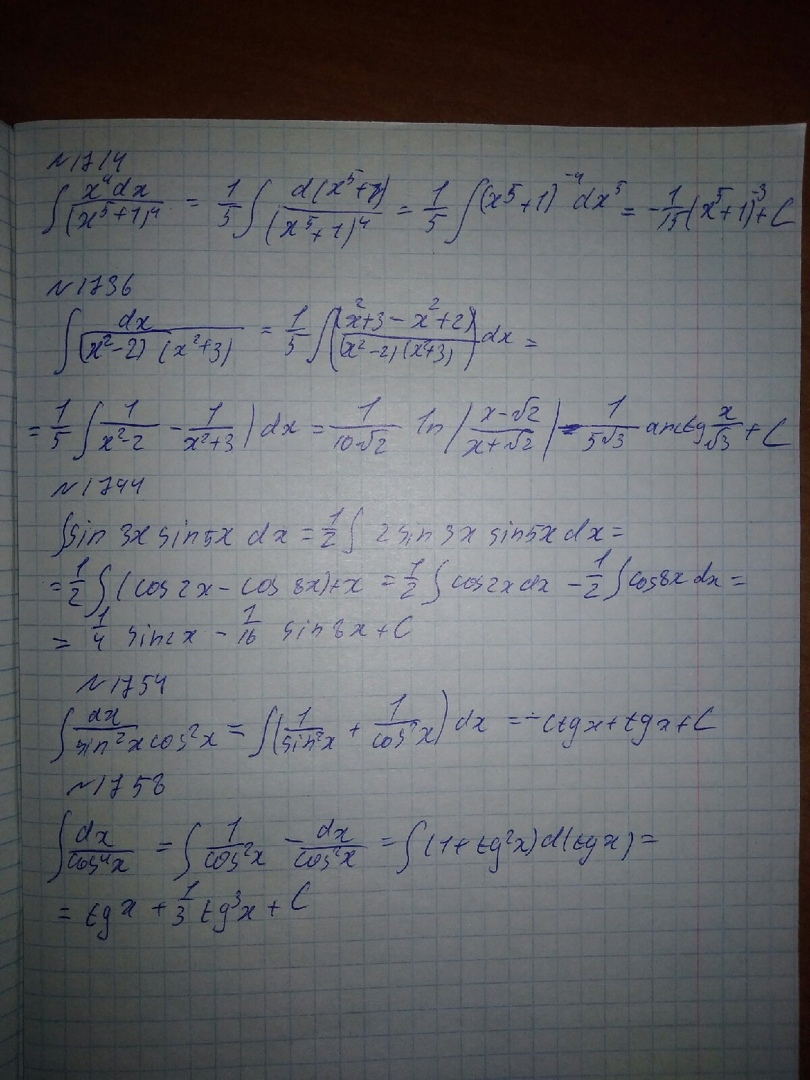 №1714
∫ x⁴dx/(x⁵+1)⁴ = 1/5 ∫ d(x⁵+1)/(x⁵+1)⁴ = 1/5 ∫(x⁵+1)⁻⁴ dx⁵ = -1/15 (x⁵+1)⁻³ + C
№1736
∫ dx/((x²-2)(x²+3)) = 1/5 ∫ ((x²+3 - x²+2)/((x²-2)(x²+3))) dx =
= 1/5 ∫ (1/(x²-2) - 1/(x²+3)) dx = 1/(10√2) ln |(x-√2)/(x+√2)| - 1/(5√3) arctg x/√3 + C
№1744
∫sin 3x sin5x dx = 1/2 ∫ 2 sin 3x sin5x dx =
= 1/2 ∫ (cos 2x - cos 8x)+x = 1/2 ∫ cos2x dx - 1/2 ∫ cos8x dx =
= 1/4 sin2x - 1/16 sin 8x + C
№1754
∫ dx/(sin²x cos²x) = ∫(1/sin²x + 1/cos²x) dx = -ctgx + tgx + C
№1758
∫ dx/cos⁴x = ∫ 1/cos²x - dx/cos²x = ∫(1+tg²x)d(tgx) =
= tgx + 1/3 tg³x + C